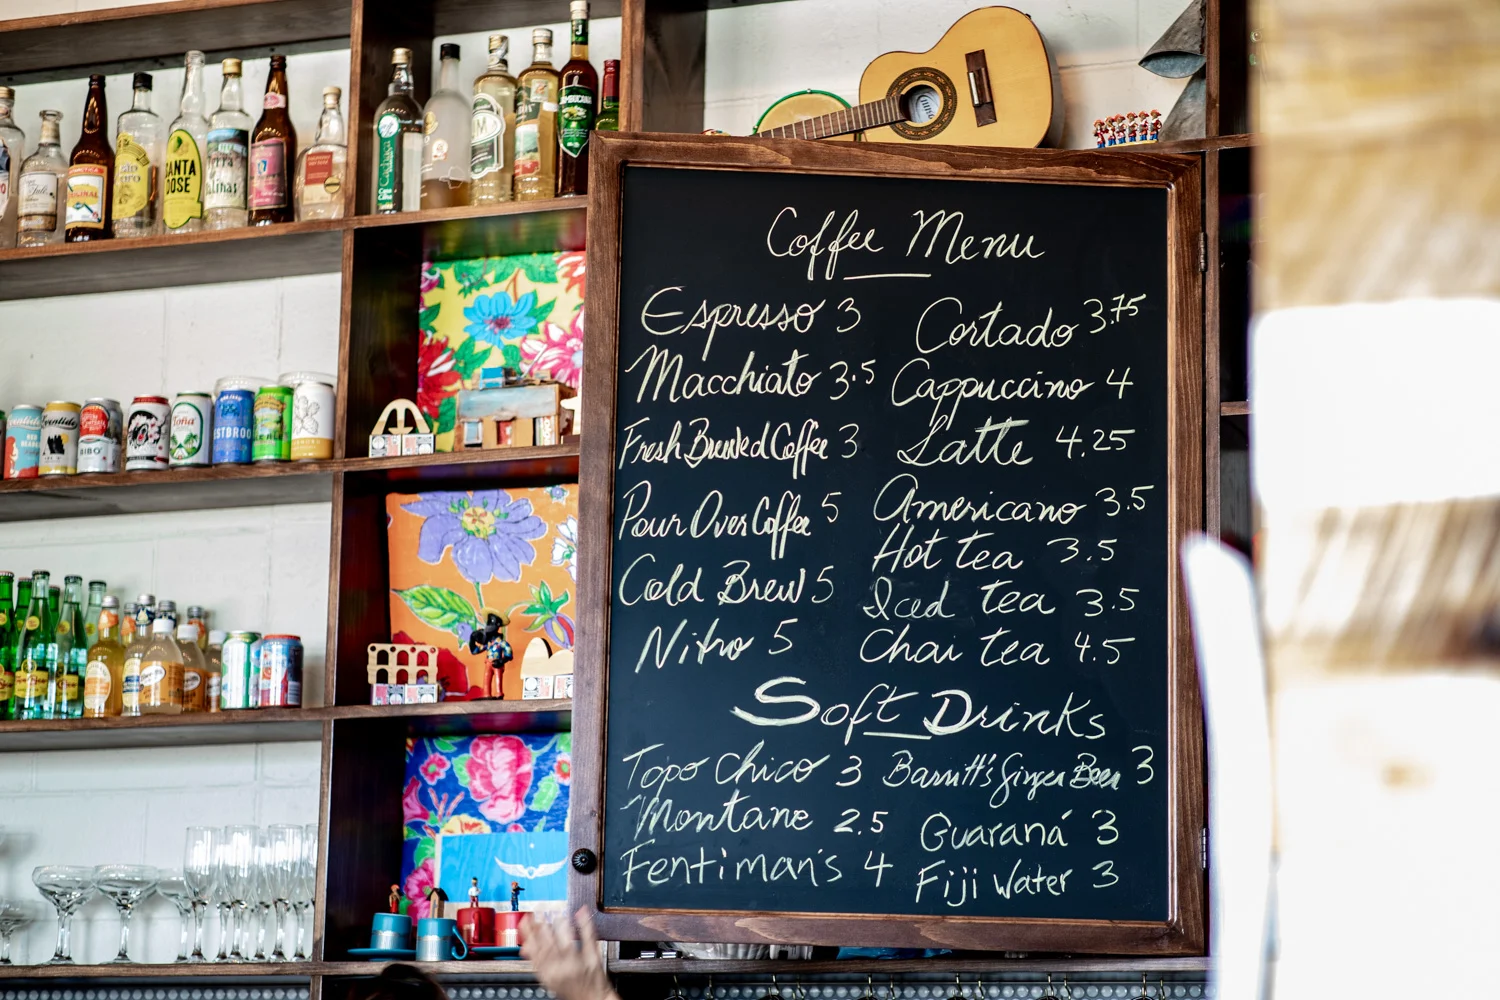 Coffee Menu
Espresso 3
Macchiato 3.5
Fresh Brewed Coffee 3
Pour Over Coffee 5
Cold Brew 5
Nitro 5
Cortado 3.75
Cappuccino 4
Latte 4.25
Americano 3.5
Hot tea 3.5
Iced tea 3.5
Chai tea 4.5
Soft Drinks
Topo Chico 3
Montane 2.5
Fentiman's 4
Barritt's Ginger Beer 3
Guaraná 3
Fiji Water 3
SANTA
DOSE
ORIGINAL
Cachaça